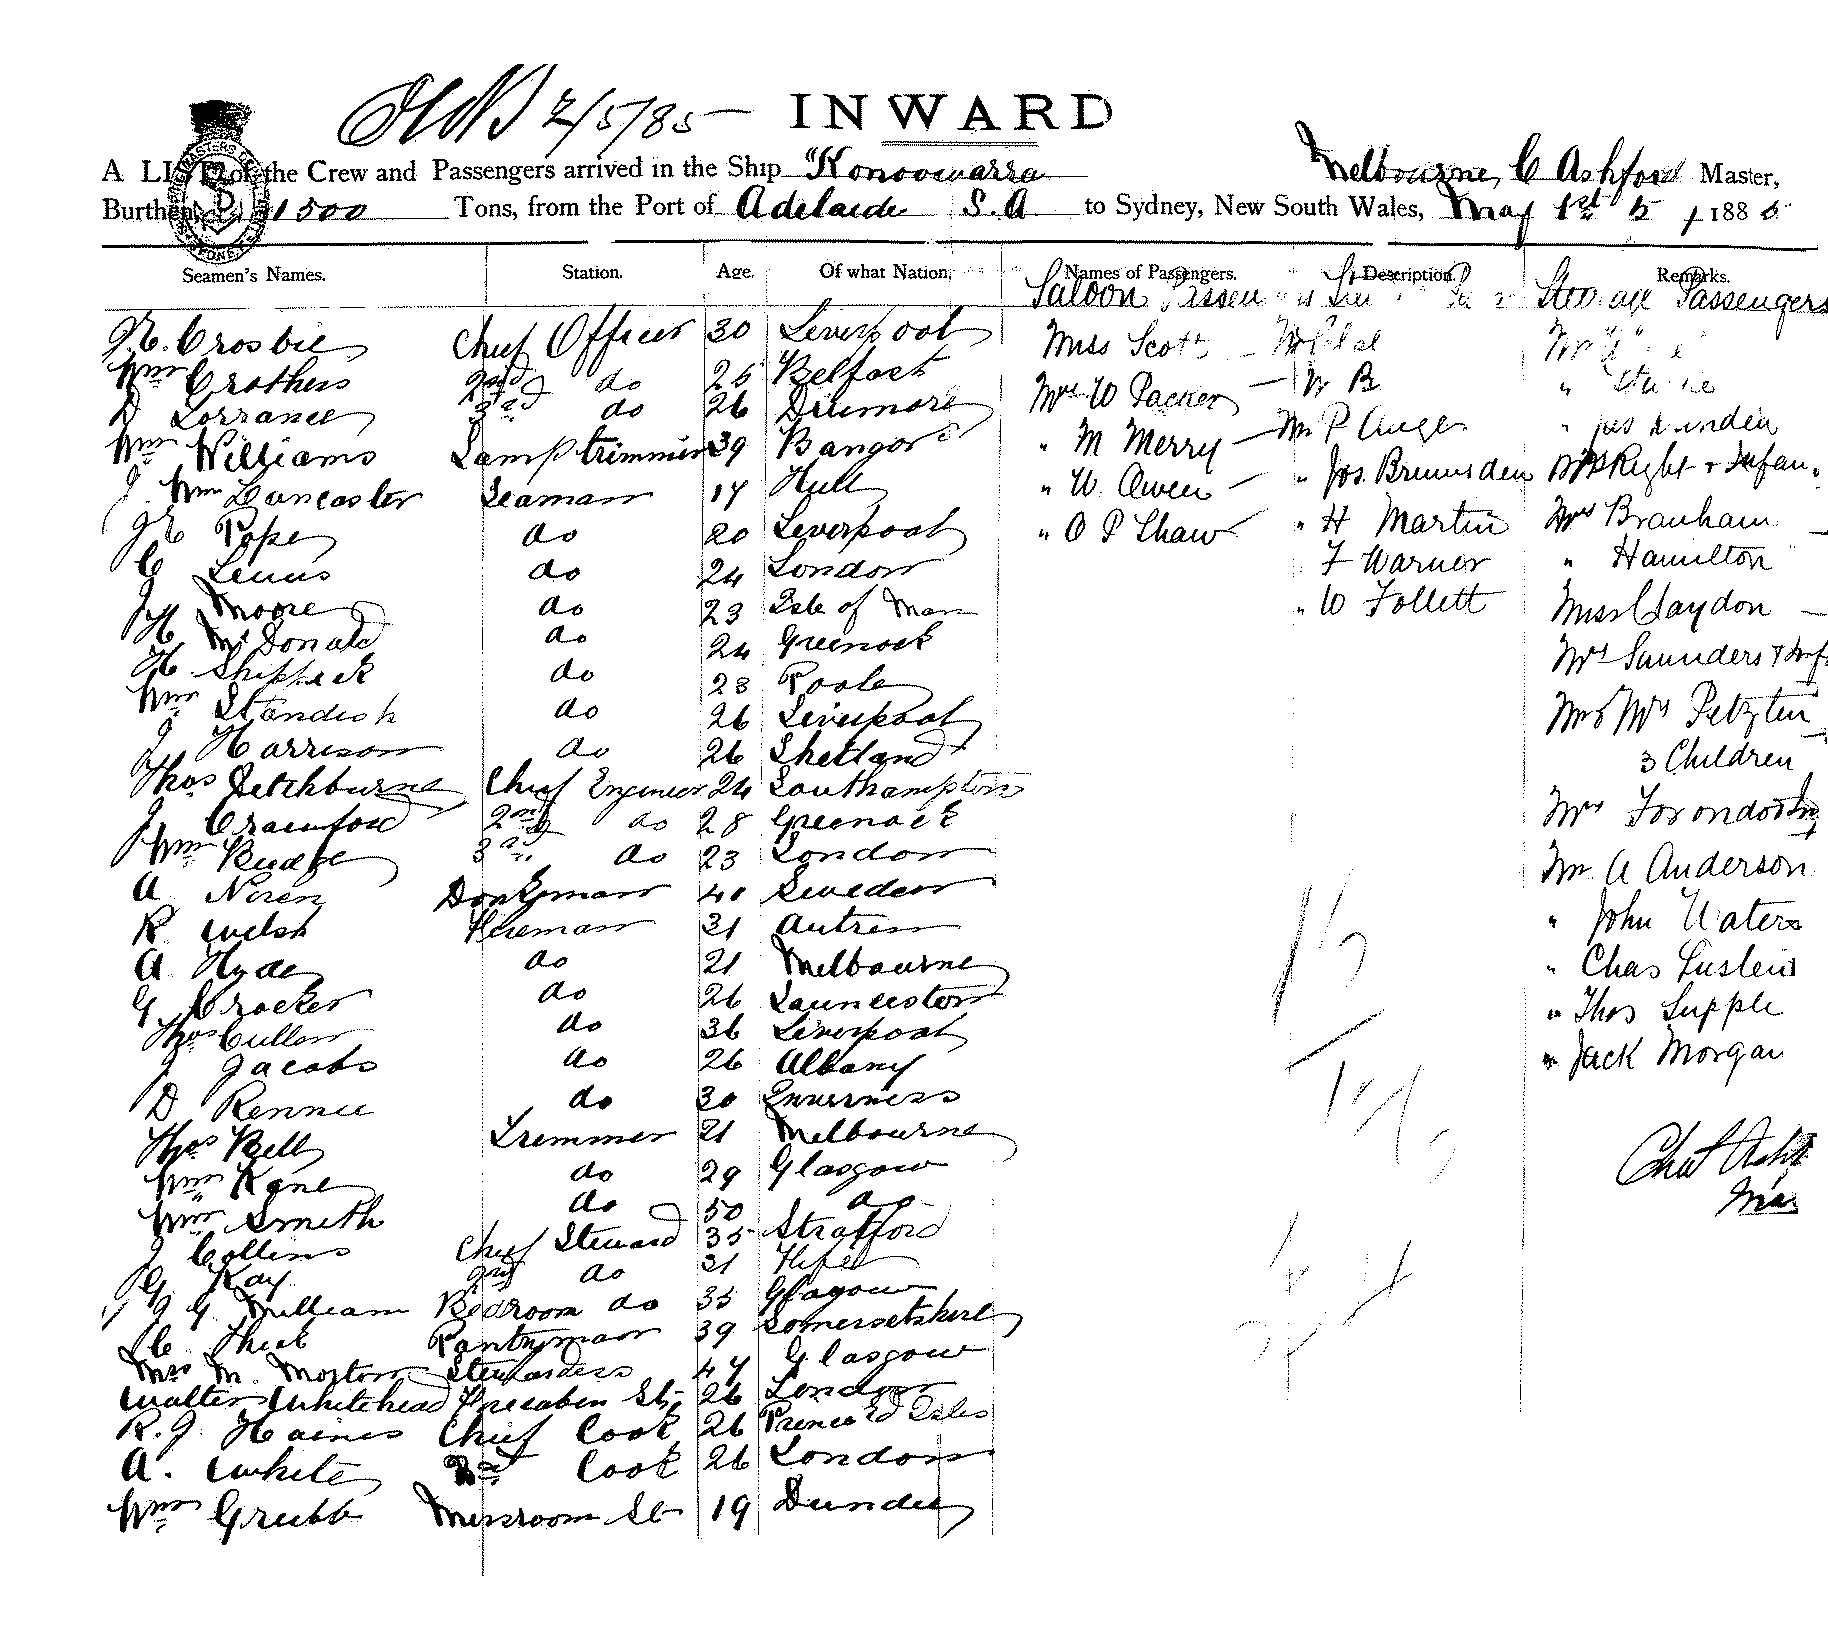 2/5/85 INWARD
A LIST of the Crew and Passengers arrived in the Ship "Konoowarra Melbourne, C Ashford Master,
Burthen 1500 Tons, from the Port of Adelaide S.A to Sydney, New South Wales, May 1st 1885
Seamen's Names. Station. Age. Of what Nation. Names of Passengers. Description. Remarks.
Saloon Passen Steerage Passengers
Crosbie Chief Officer 30 Liverpool Miss Scott
Wm Crothers 2nd do 25 Belfast Mrs W Packer
D Lorrance 3rd do 26 Drumore Mr P Auger
Wm Williams Lamptrimmer 39 Bangor " M Merry " Jos. Brumsden Mrs Right & Infan
J. Wm Lancaster Seaman 17 Hull " W. Owen " H Martin Mrs Branham
Pope do 20 Liverpool " O P Shaw F Warner " Hamilton
C Lewis do 24 London " W Follett Miss Claydon
J Moore do 23 Isle of Man
H McDonald do 24 Greenock Mrs Saunders & Inf
H do 23 Poole
Wm Standish do 26 Liverpool Mr & Mrs
J Harrison do 26 Shetland 3 Children
Thos Detchburne Chief Engineer 24 Southampton
J Crawford 2nd do 28 Greenock Mrs
Wm Budge 3rd do 23 London Mr A Anderson
A Noren Donkyman 40 Sweden
R Welsh Fireman 31 Antrim " John Waters
A Hyde do 21 Melbourne " Chas
G Crocker do 26 Launceston " Thos Supple
Thos Cullen do 36 Liverpool " Jack Morgan
J Jacobs do 26 Albany
D Rennie do 30 Inverness
Thos Bell Trimmer 21 Melbourne
Wm Kane do 29 Glasgow
Wm Smith do 50 do
J Collins Chief Steward 35 Stratford
G. Kay 2nd do 31 Fife
J G. Milliam Bedroom do 35 Glagow
C. Pantryman 39 Somersetshire
Mrs M. Morton Stewardess 47 Glasgow
Walter Whitehead Forecabin St. 26 London
R. J. Haines Chief Cook 26 Prince Ed Isles
A. White 2nd Cook 26 London
Wm Grubb Messroom St 19 Dundee